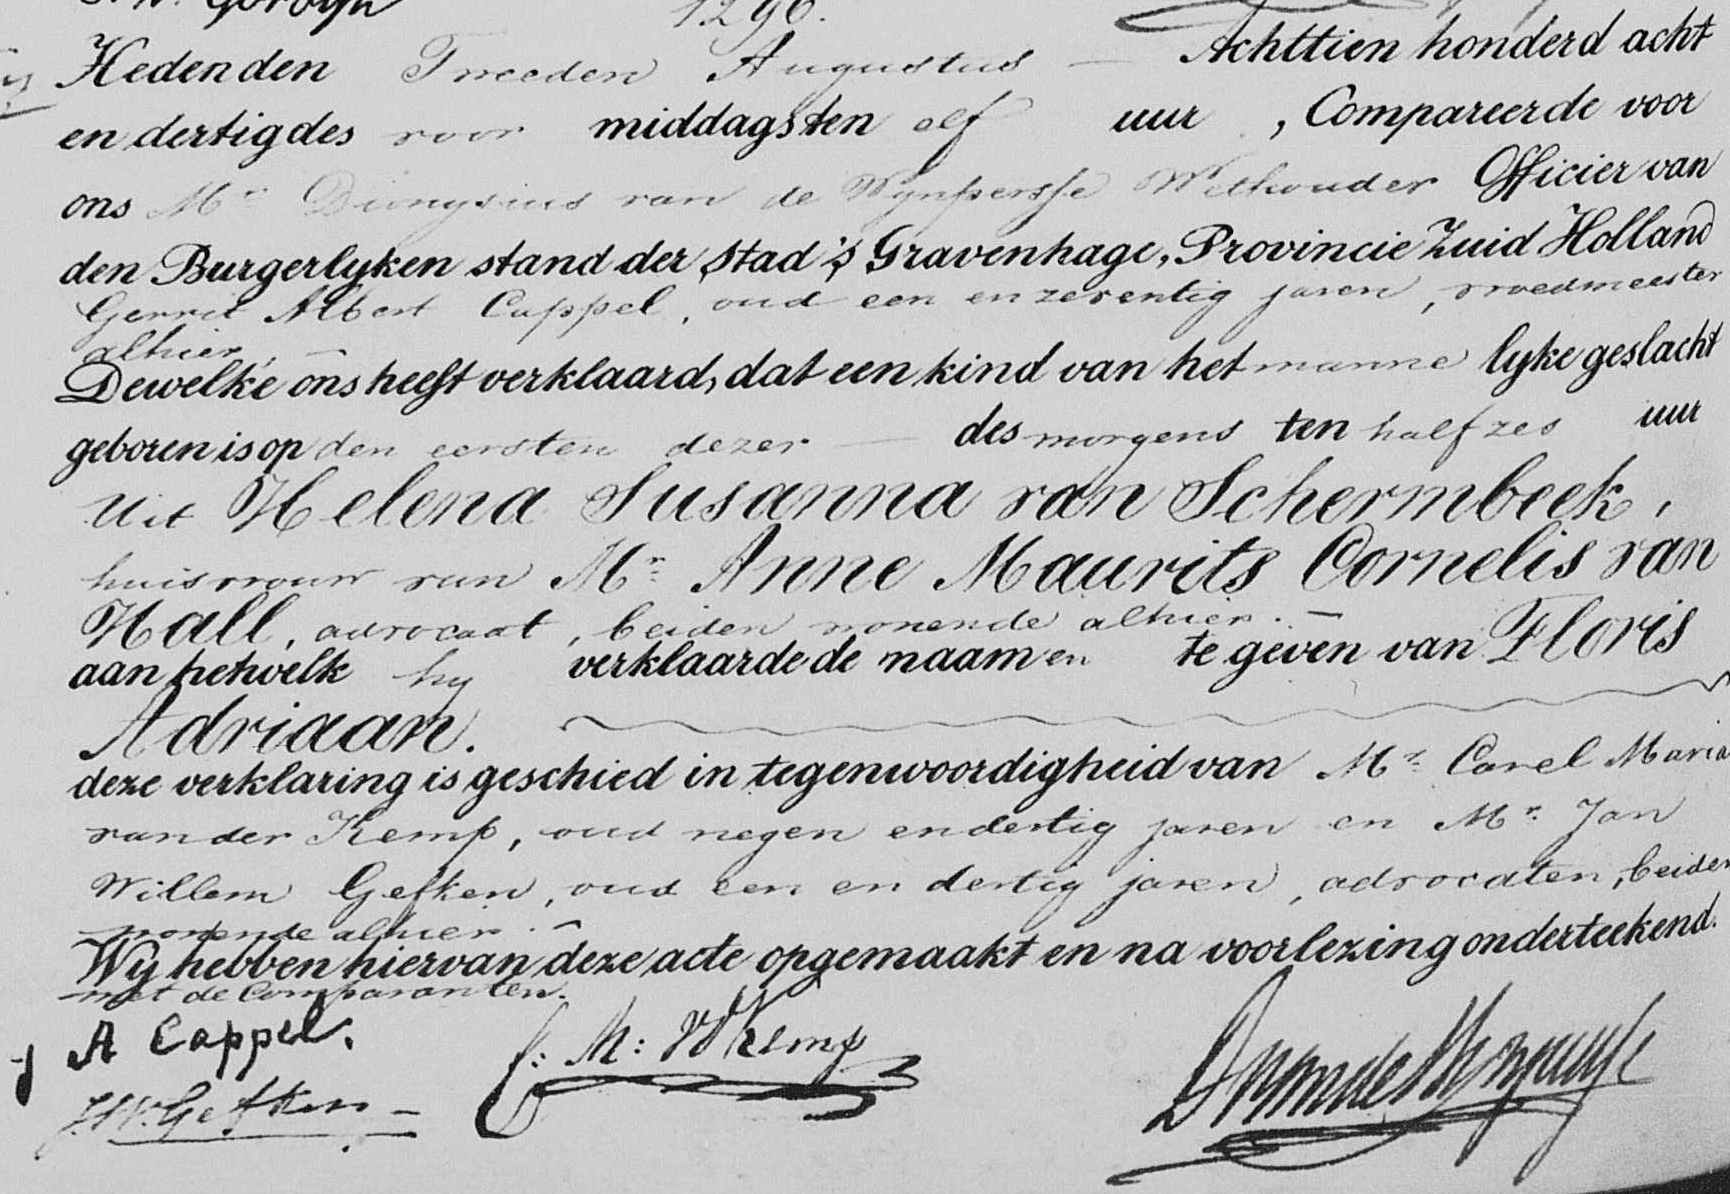 1296.
Heden den Tweeden Augustus — Achttien honderd acht
en dertig des voor middags ten elf uur , Compareerde voor
ons Mr. Dionysius van de Wynpersse Wethouder Officier van
den Burgerlyken stand der stad 's Gravenhage, Provincie Zuid Holland
Gerrit Albert Cappel, oud een en zeventig jaren, vroedmeester
alhier, —
Dewelke ons heeft verklaard, dat een kind van het manne lyke geslacht
geboren is op den eersten dezer — des morgens ten half zes uur
uit Helena Susanna van Schermbeek,
huisvrouw van Mr. Anne Maurits Cornelis van
Hall, advocaat, beiden wonende alhier. —
aan hetwelk hy verklaarde de naam en te geven van Floris
Adriaan.
deze verklaring is geschied in tegenwoordigheid van Mr. Carel Maria
van der Kemp, oud negen en dertig jaren en Mr. Jan
Willem Gefken, oud een en dertig jaren, advocaten, beiden
wonende alhier. —
Wy hebben hiervan deze acte opgemaakt en na voorlezing onderteekend.
met de Comparanten.
A Cappel.
C: M: VdKemp
J.W. Gefken —
D van de Wynpersse